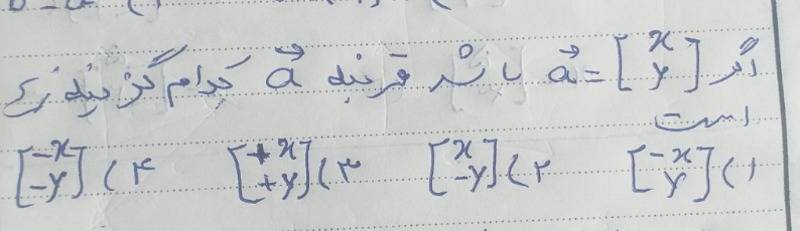 اگر a⃗ = [x y] باشد قرینه a⃗ کدام گزینه زیر
است
۱) [-x y] ۲) [x -y] ۳) [+x +y] ۴) [-x -y]